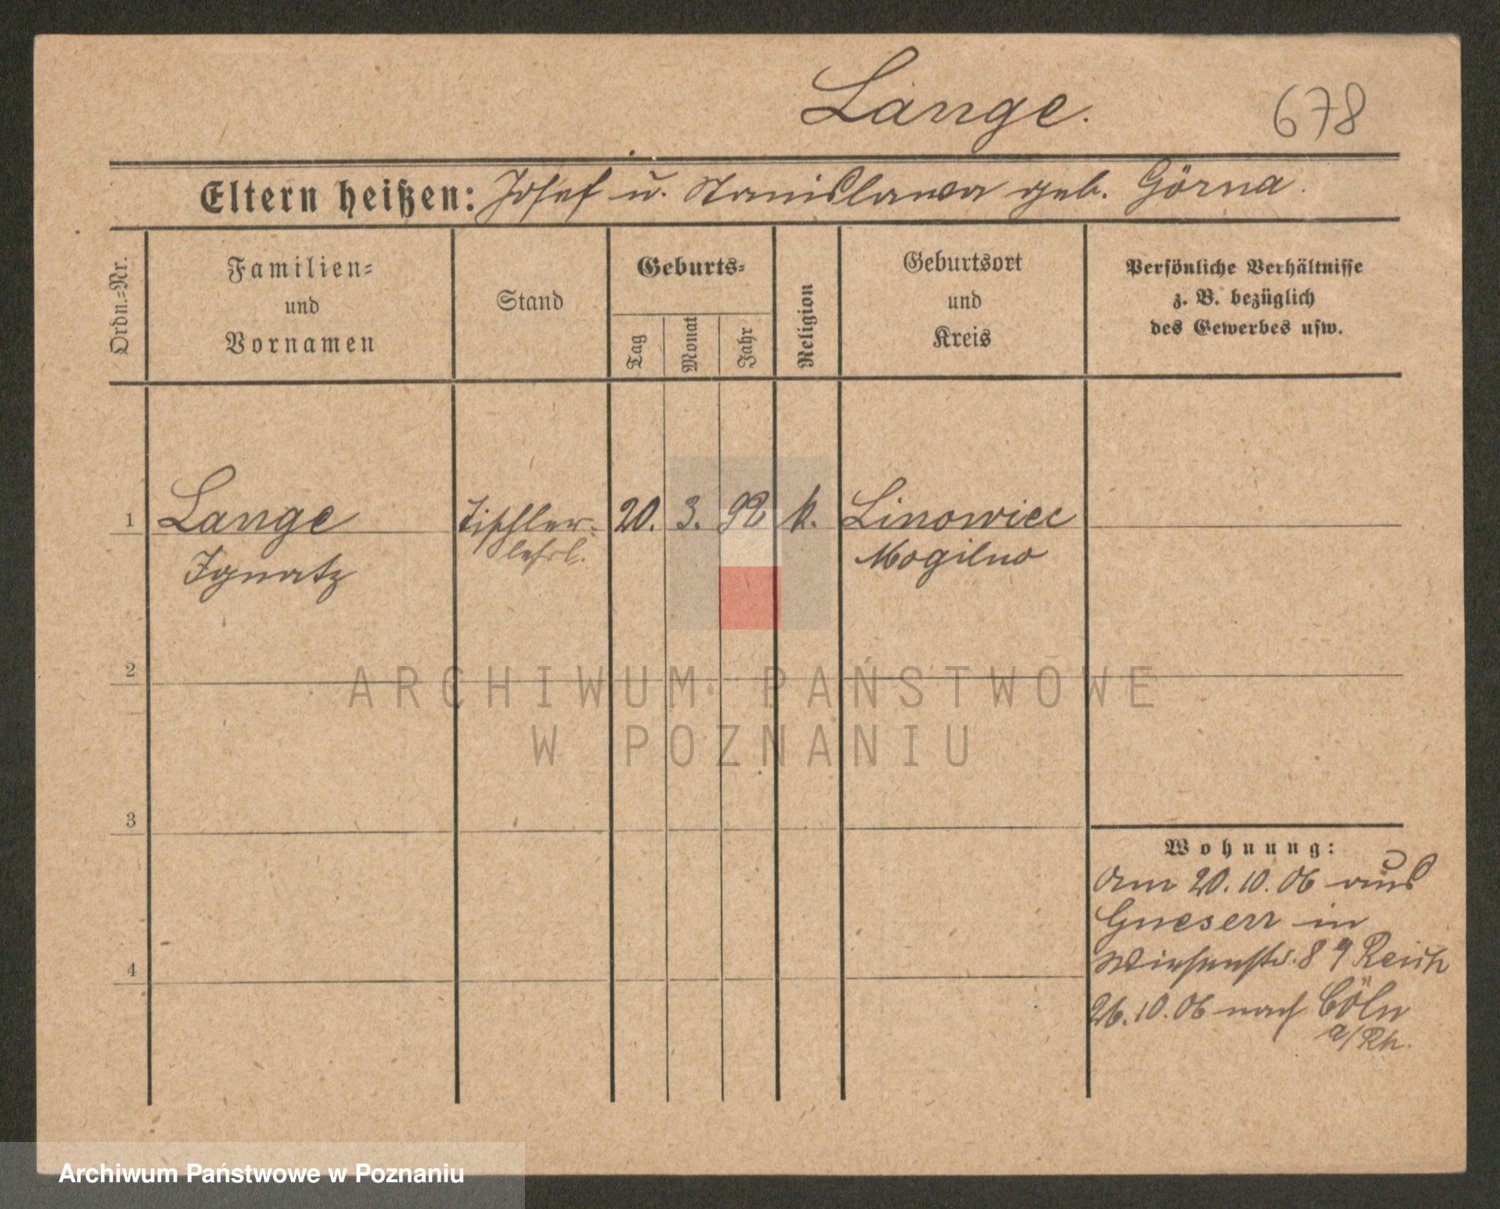 Lange.
678
Eltern heißen: Josef u. Stanislawa geb. Górna.
Ordn.-Nr.
Familien-
und
Vornamen
Stand
Geburts-
Tag
Monat
Jahr
Religion
Geburtsort
und
Kreis
Persönliche Verhältnisse
z. B. bezüglich
des Gewerbes usw.
1 Lange Tischler- 20. 3. 92 k. Linowiec
Ignatz lehrl. Mogilno
2
ARCHIWUM PAŃSTWOWE
W POZNANIU
3
4
Wohnung:
Am 20.10.06 aus
Gnesen in
Wiesenstr. 8 9 Reich
26.10.06 nach Cöln
a/Rh.
Archiwum Państwowe w Poznaniu